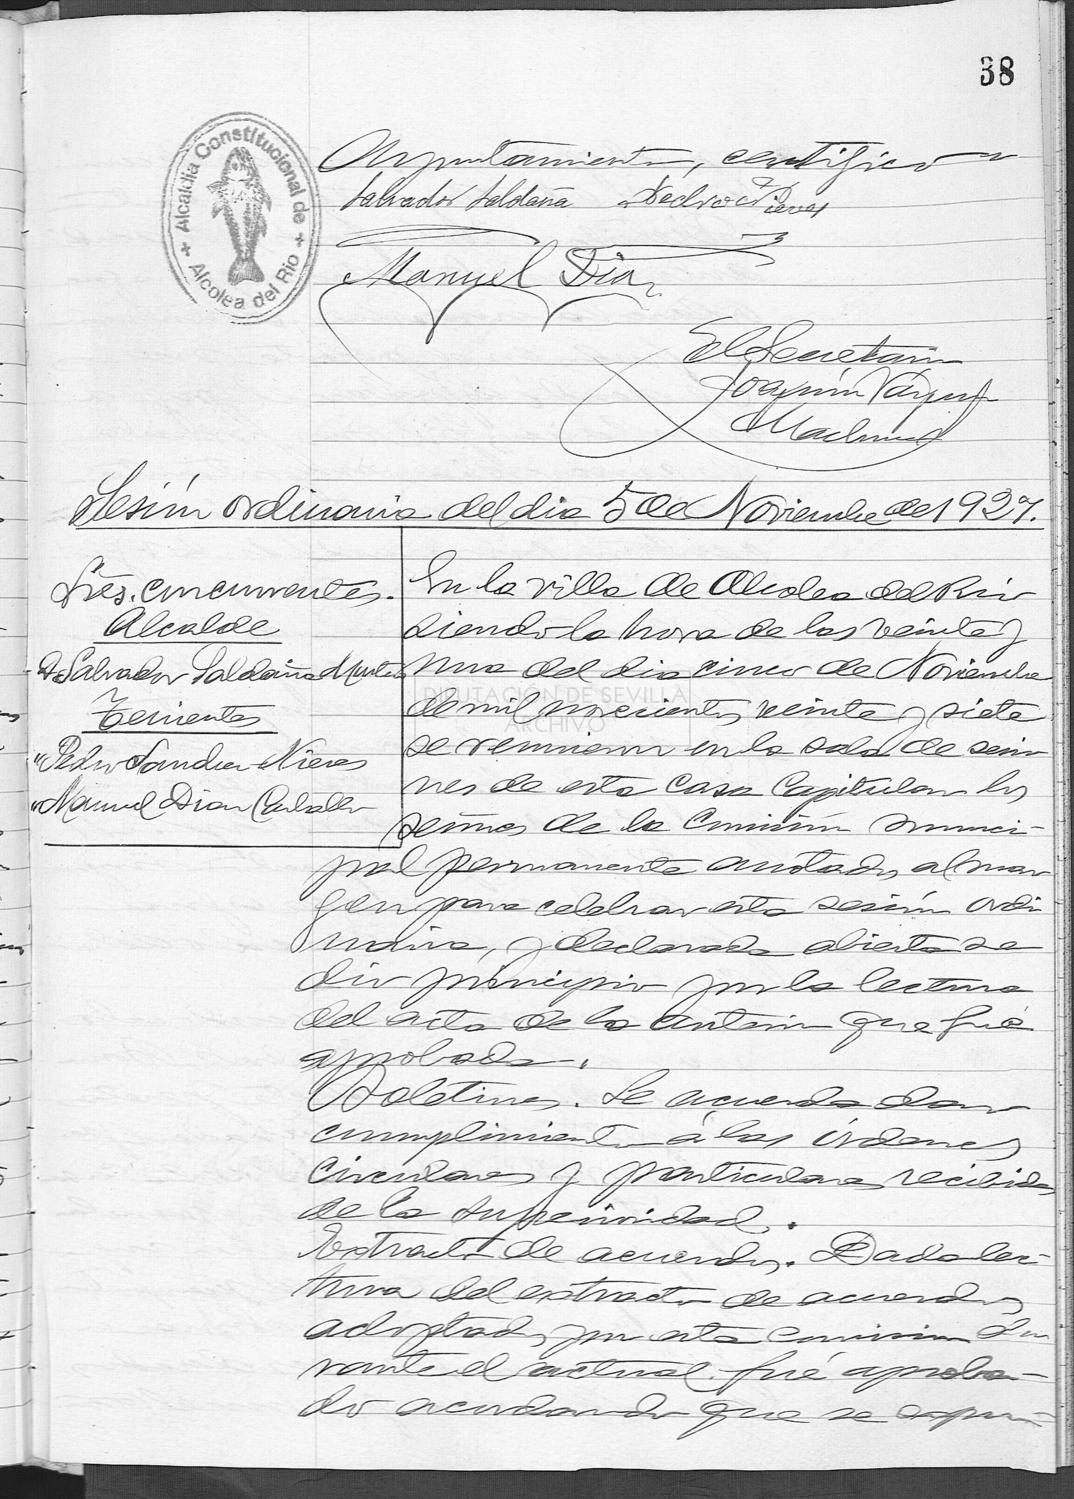 38
Alcaldia Constitucional de
Alcolea del Rio
Ayuntamiento, certifico
Salvador Saldaña Pedro S Nieves
Manuel Diaz
El Secretario
Joaquín Vázquez
Machuca
Sesión ordinaria del dia 5 de Noviembre de 1927.
Sres. concurrentes.
Alcalde
D. Salvador Saldaña Montes
Tenientes
" Pedro Sanchez Nieves
" Manuel Diaz Caballero
En la villa de Alcolea del Rio
siendo la hora de las veinte y
una del dia cinco de Noviembre
de mil novecientos veinte y siete
se reunieron en la sala de sesio
nes de esta Casa Capitular los
señores de la Comisión munici-
pal permanente anotados al mar
gen para celebrar esta sesión ordi
naria, y declarada abierta se
dio principio por la lectura
del acta de la anterior que fué
aprobada.
Boletines. Se acuerda dar
cumplimiento á las órdenes
circulares y particulares recibidas
de la superioridad.
Extracto de acuerdos. Dada lec-
tura del extracto de acuerdos
adoptados por esta comision du
rante el actual fué aproba-
do acordando que se expon-
DIPUTACIÓN DE SEVILLA
ARCHIVO